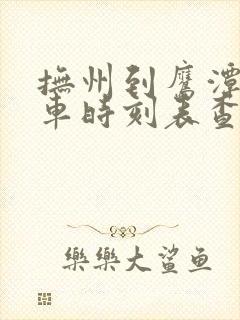 撫州到鷹潭
車時刻表查
樂樂大鲨鱼